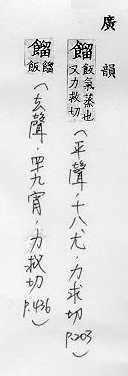 廣韻
餾 飯氣蒸也
又力救切
(平聲,十八尤,力求切 P.203)
餾 餾
飯
(去聲,四九宥,力救切 P.436)